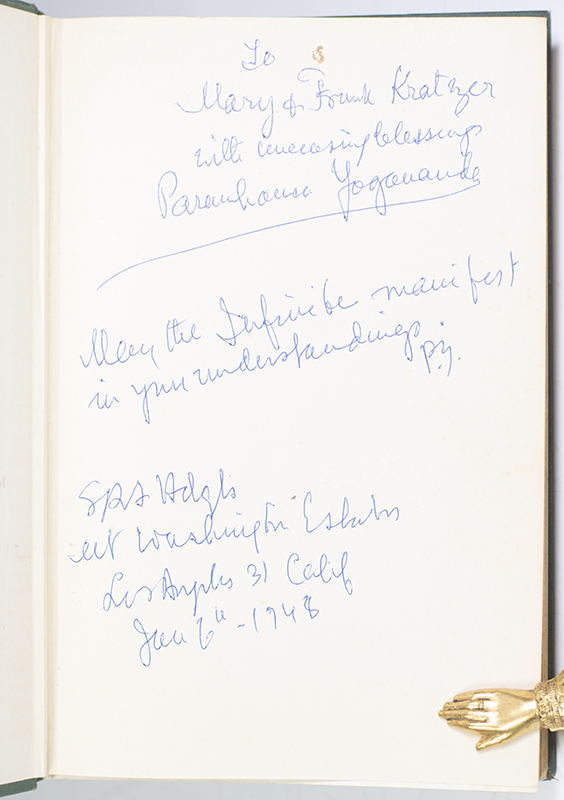 To
Mary & Frank Kratzer
with unceasing blessings
Paramhansa Yogananda
May the Infinite manifest
in your understandings
p.y.
SRF Hdqts
Mt Washington Estates
Los Angeles 31 Calif
Jan 6th - 1948